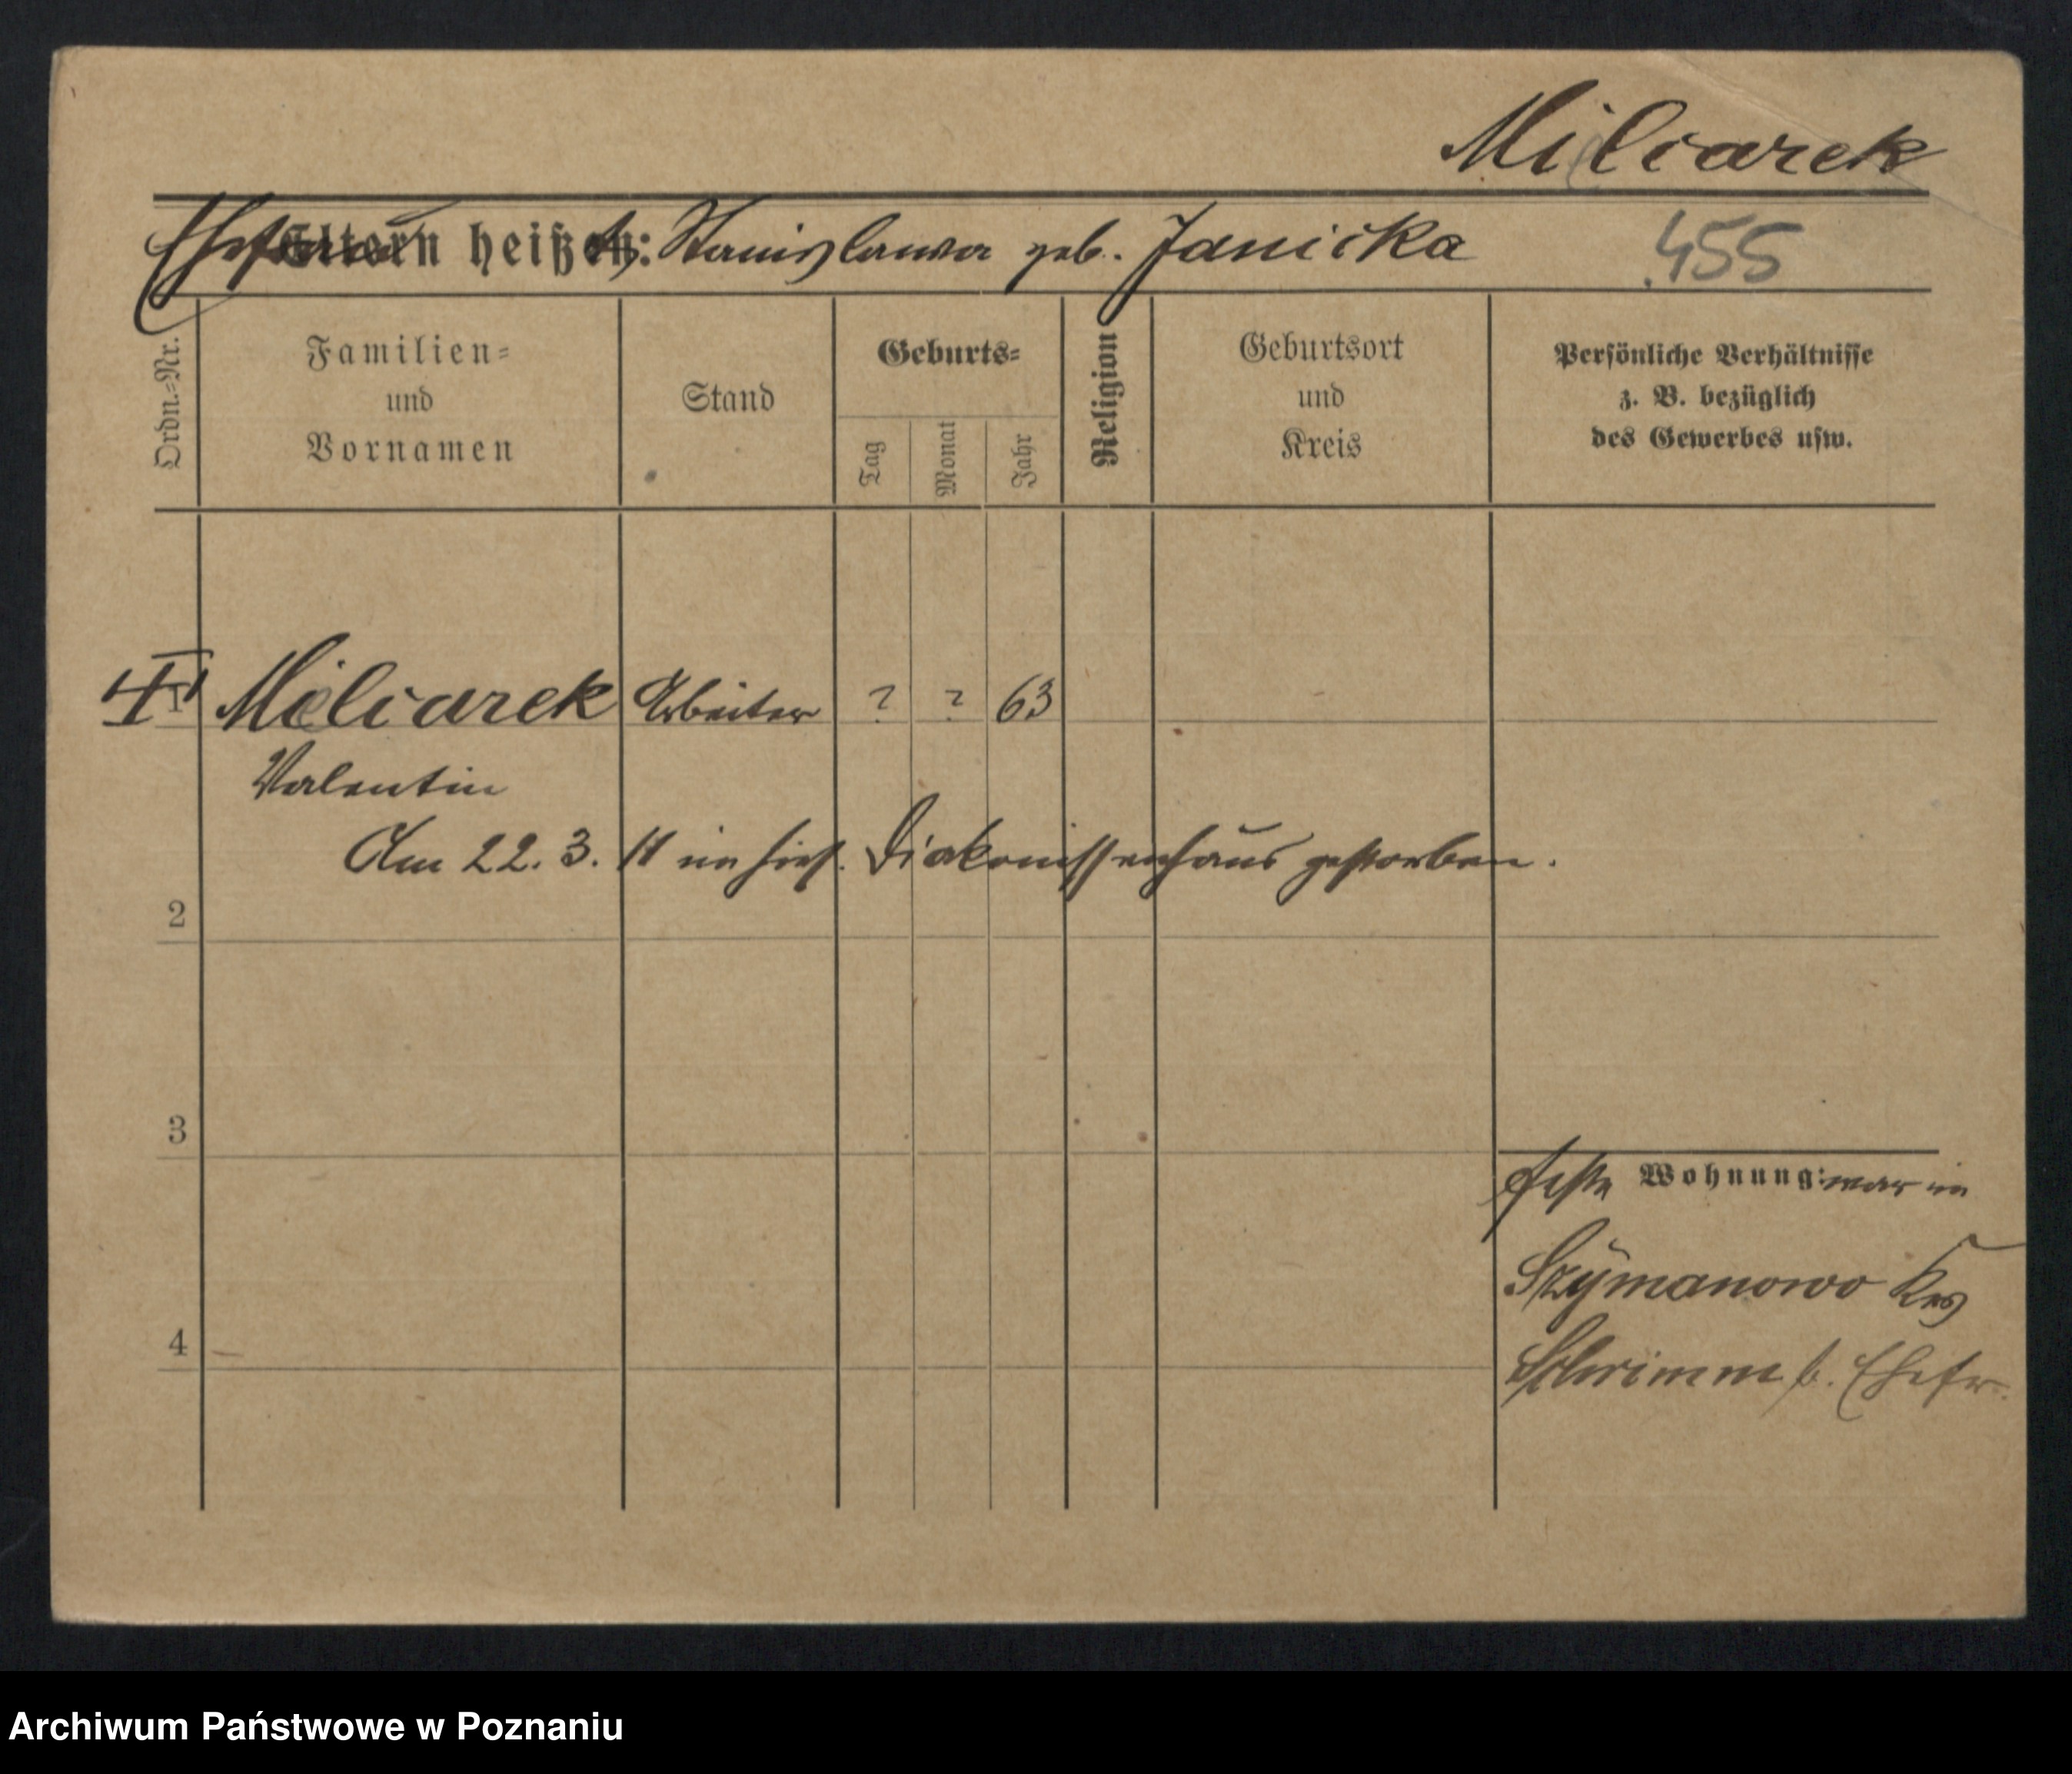 Miliarek
Ehefrau Eltern heißen: Stanislawa geb. Janicka
455
Ordn.-Nr.
Familien-
und
Vornamen
Stand
Geburts-
Tag
Monat
Jahr
Religion
Geburtsort
und
Kreis
Persönliche Verhältnisse
z. B. bezüglich
des Gewerbes usw.
1 Miliarek Arbeiter ? ? 63
Valentin
Am 22. 3. 11 im hies. Diakonissenhaus gestorben.
2
3
feste Wohnung: war in
Szymanowo Krs
4
Schrimm b. Ehefr.
Archiwum Państwowe w Poznaniu